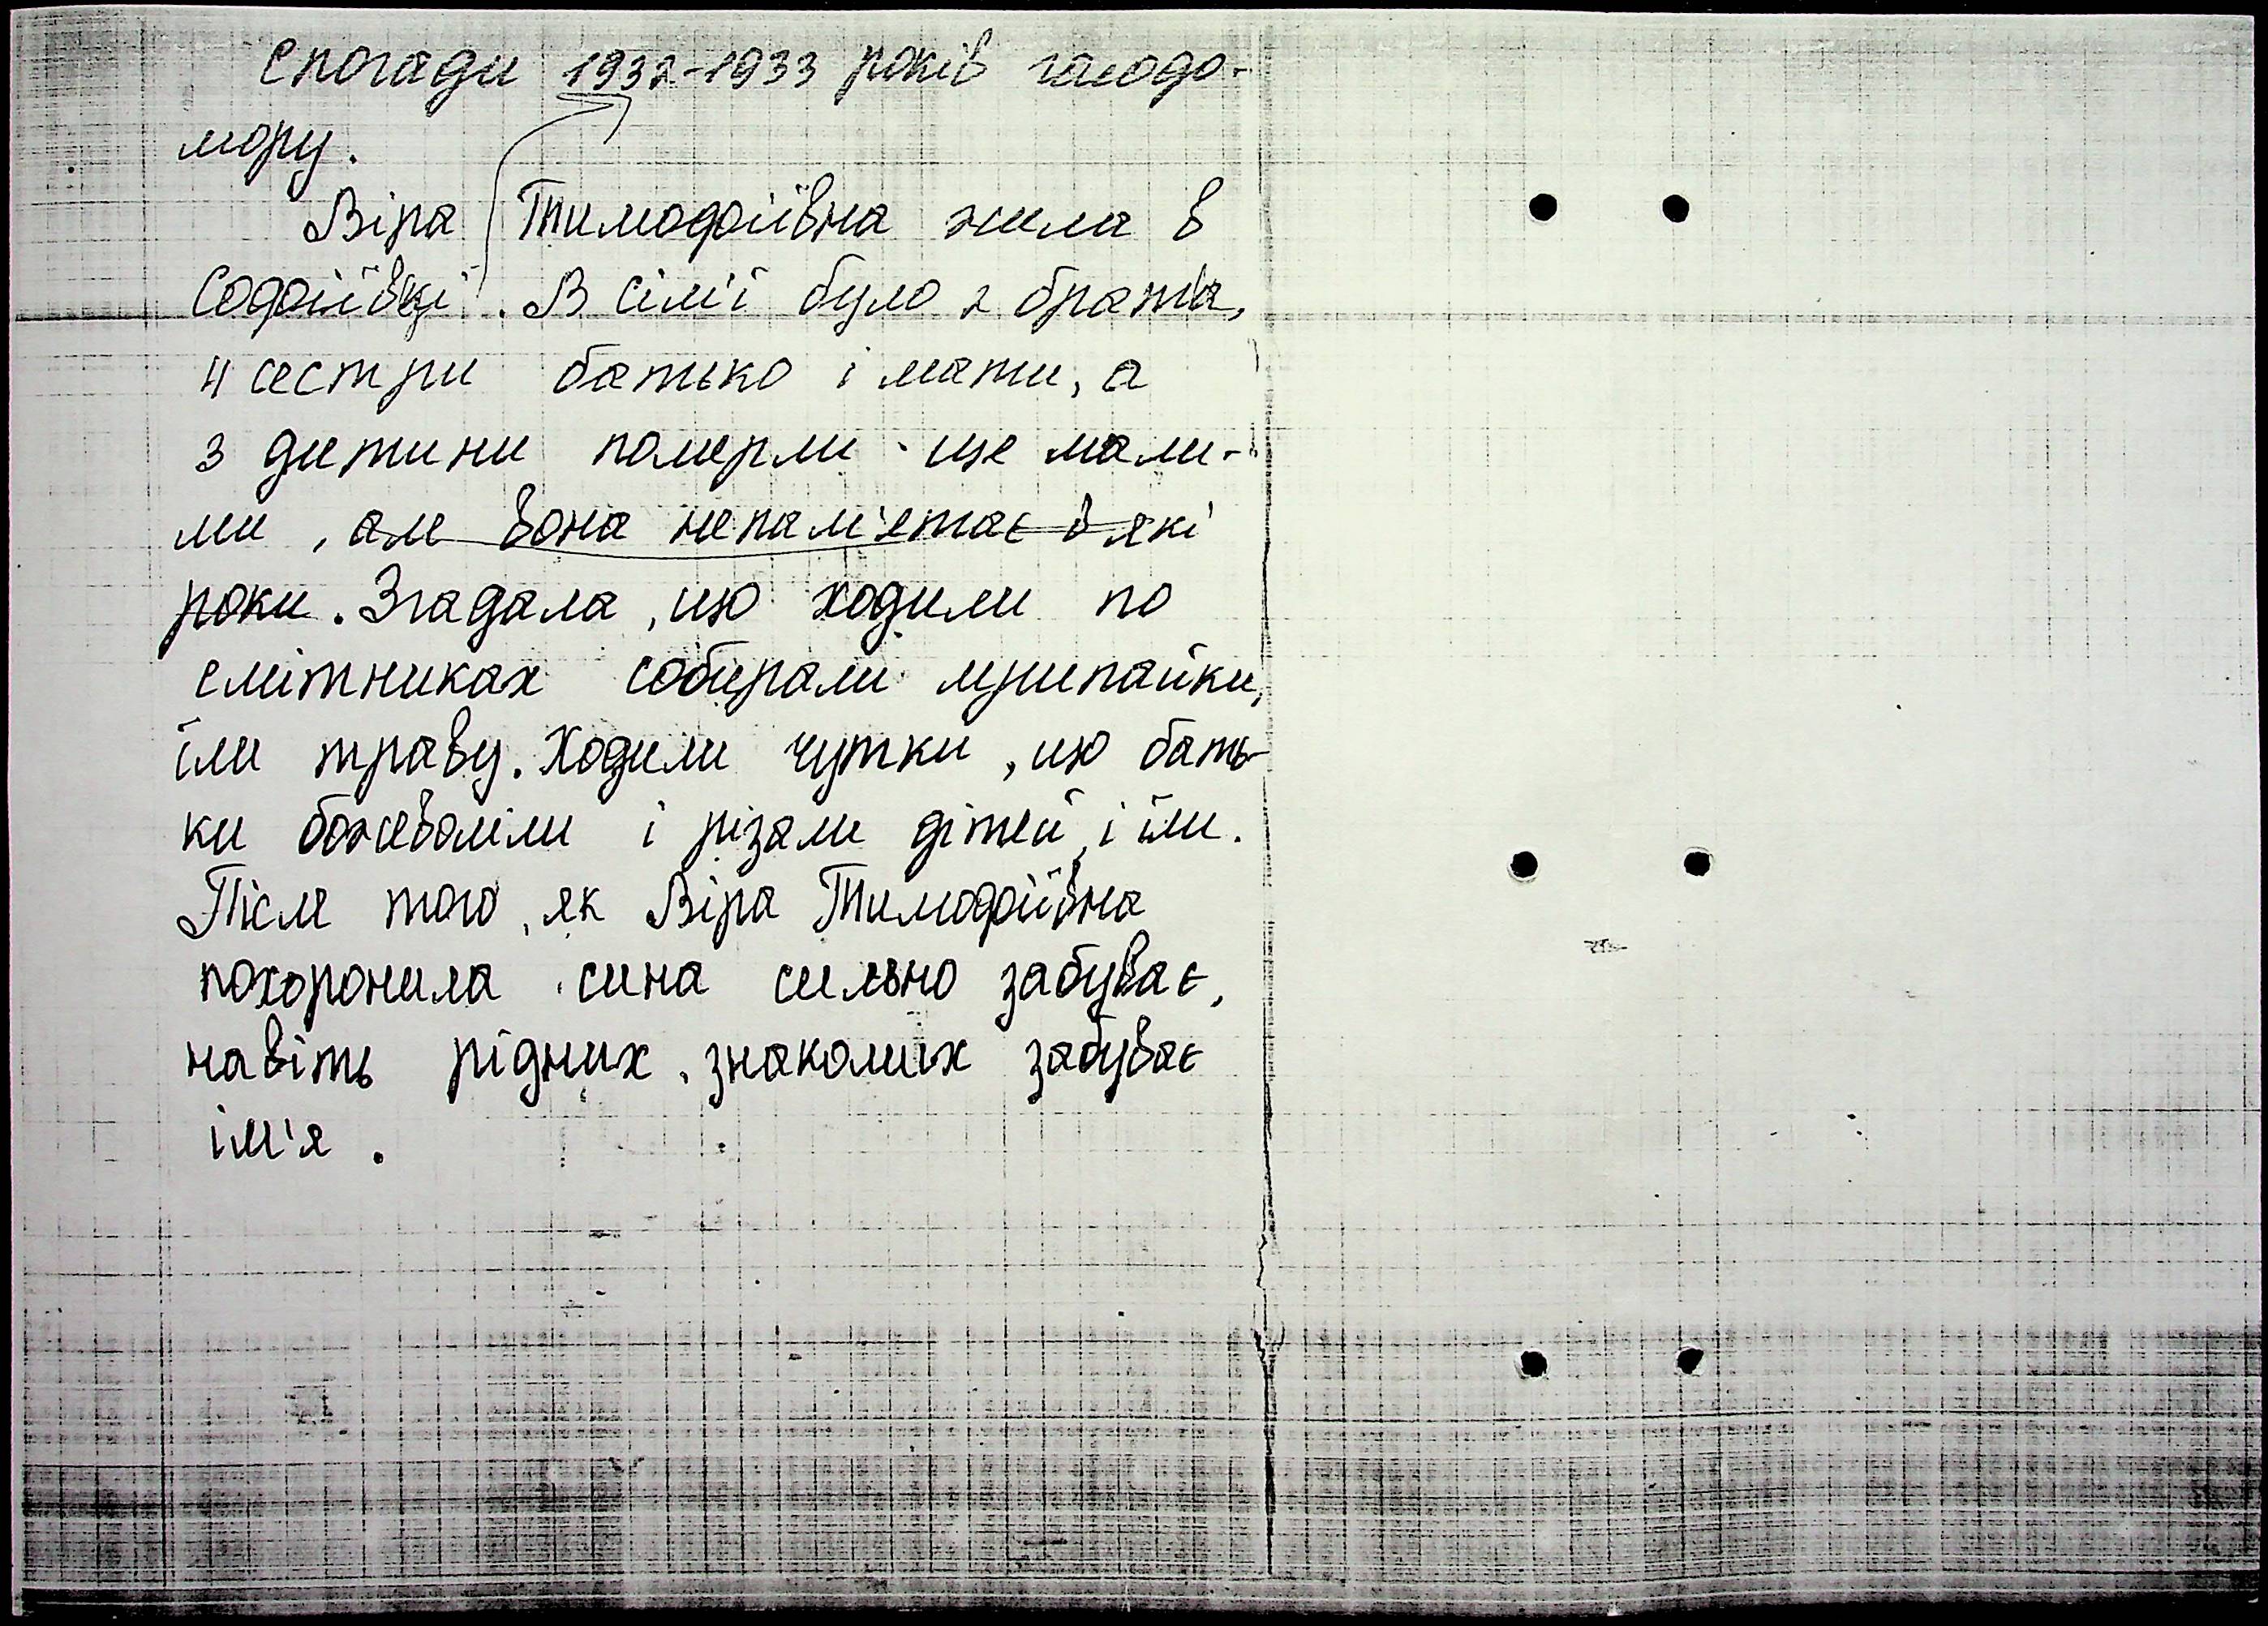 Спогади 1932-1933 років голодо-
мору.
Віра Тимофіївна жила в
Софіївці. В сім'ї було 2 брата,
4 сестри батько і мати, а
3 дитини померли ще мали-
ми, але вона непам'ятає в які
роки. Згадала, що ходили по
смітниках собирали лушпайки,
їли траву. Ходили чутки, що бать-
ки божеволіли і різали дітей, і їли.
Після того, як Віра Тимофіївна
похоронила сина сильно забуває,
навіть рідних, знакомих забуває
ім'я.